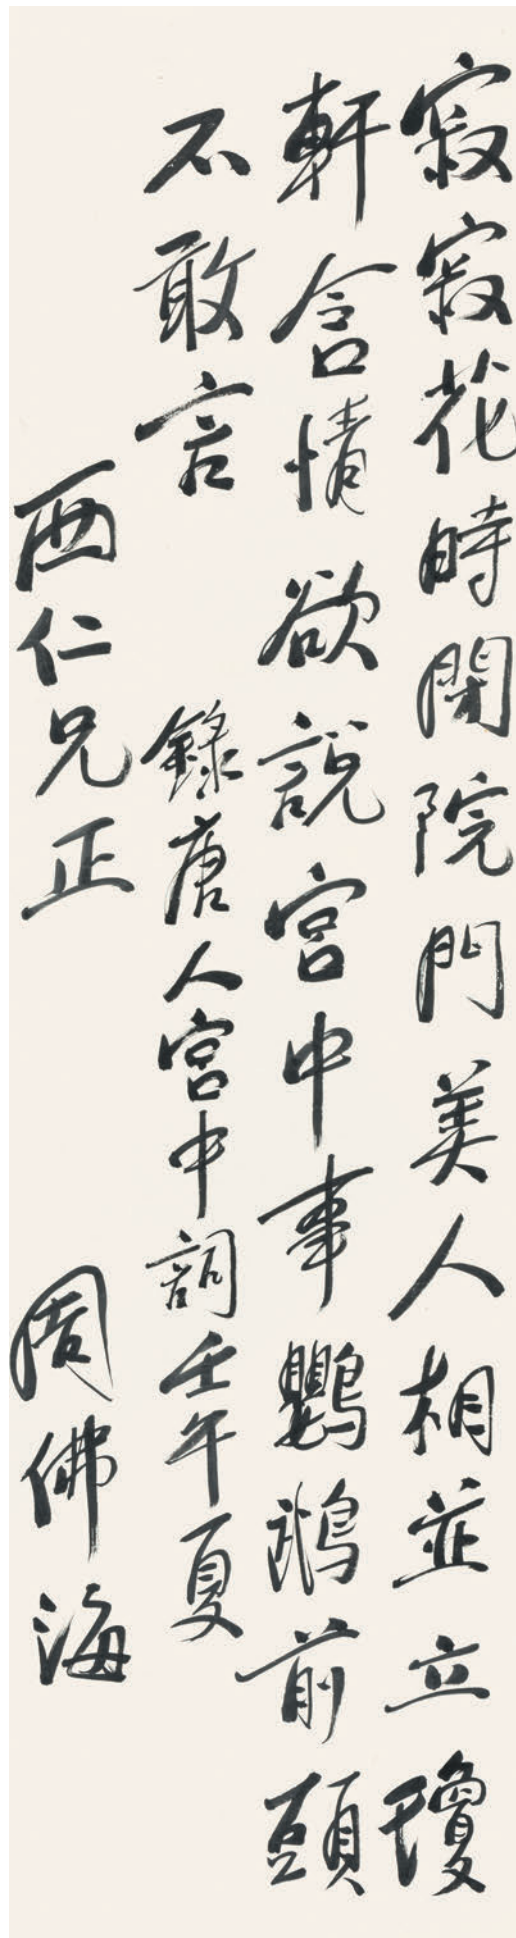 寂寂花時閉院門美人相並立瓊
軒含情欲說宮中事鸚鵡前頭
不敢言 錄唐人宮中詞壬午夏
西仁兄正 周佛海